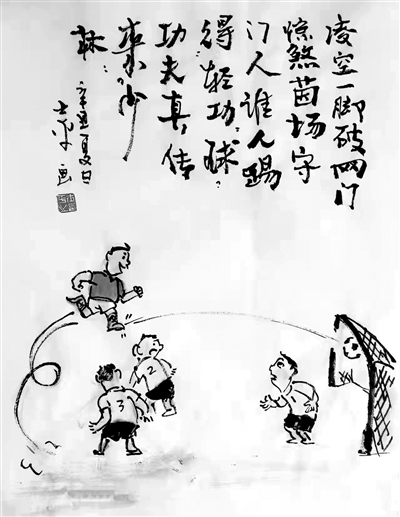 凌空一脚破网门
惊煞茵场守
门人谁人踢
得轻功球
功夫真传
来少
林
辛丑夏日
画
2
3
1